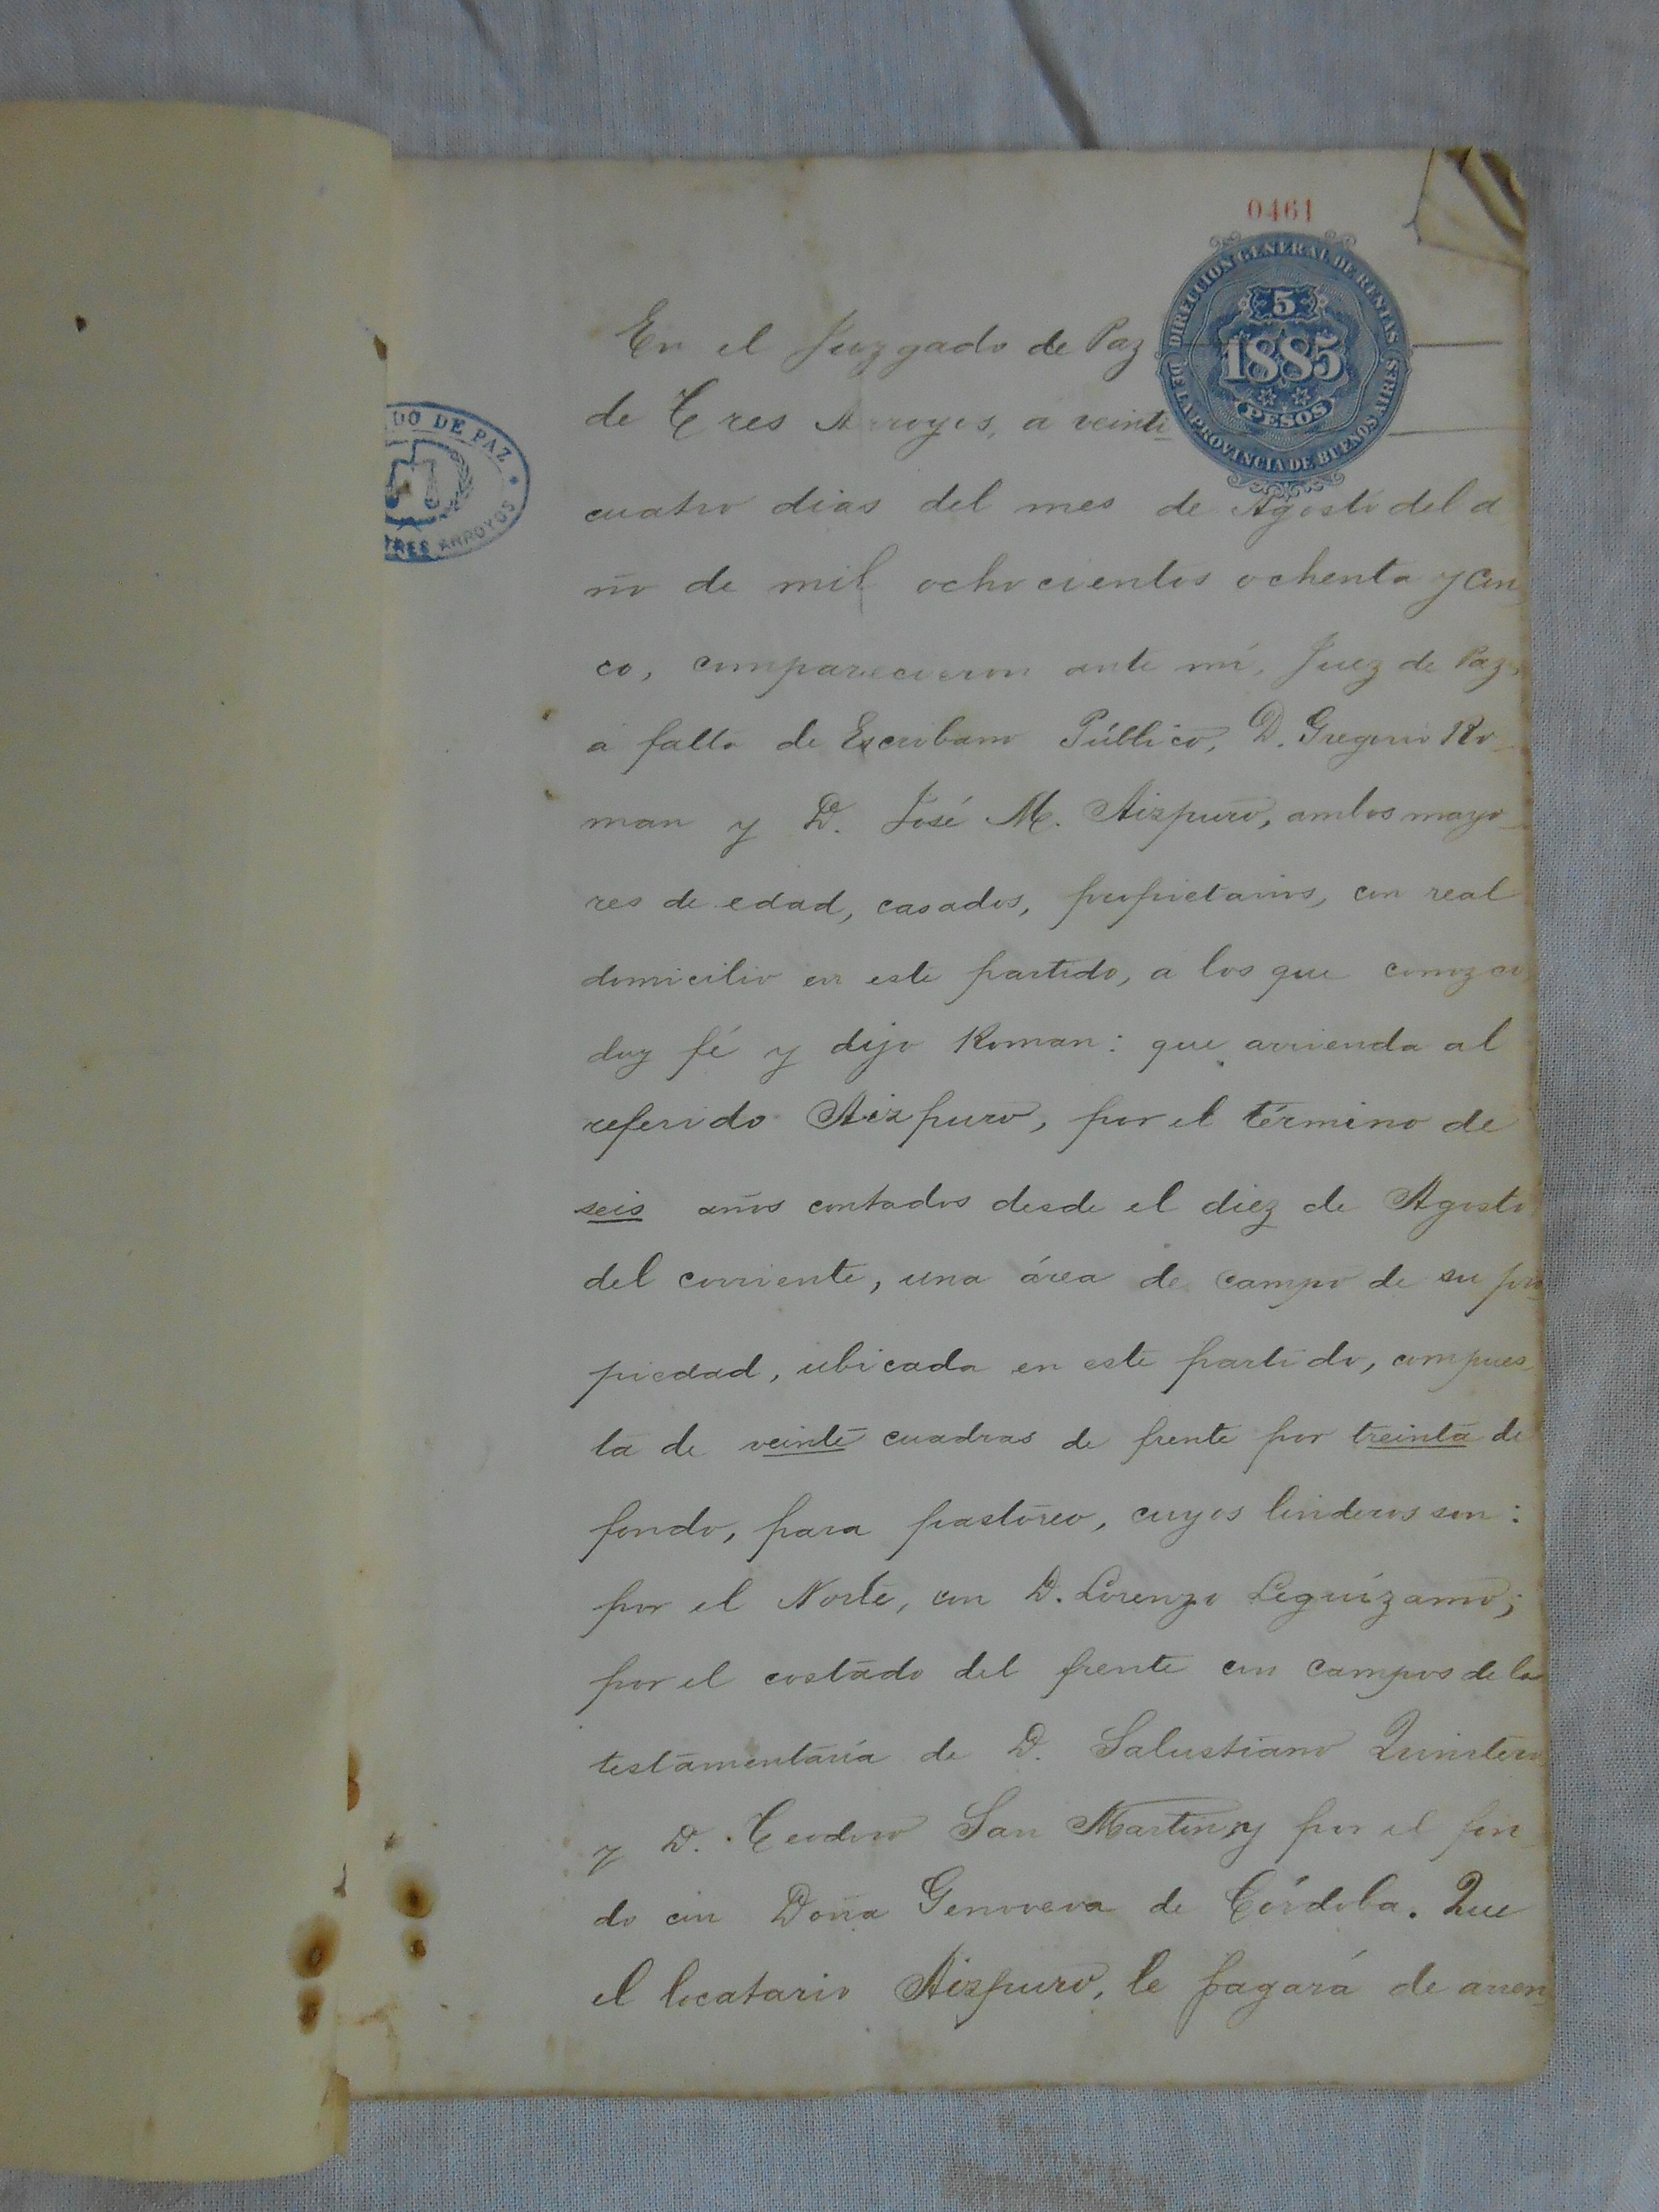 0461
DIRECCION GENERAL DE RENTAS
DE LA PROVINCIA DE BUENOS AIRES
5
1885
PESOS
DO DE PAZ
TRES ARROYOS
En el Juzgado de Paz
de Tres Arroyos, a veinti
cuatro dias del mes de Agosto del a
ño de mil ochocientos ochenta y cin
co, comparecieron ante mí, Juez de Paz,
á falta de Escribano Público, D. Gregorio Ro-
man y D. José M. Aizpuro, ambos mayo-
res de edad, casados, propietarios, con real
domicilio en este partido, a los que conozco
doy fé y dijo Roman: que arrienda al
referido Aizpuro, por el término de
seis años contados desde el diez de Agosto
del corriente, una área de campo de su pro-
piedad, ubicada en este partido, compues
ta de veinte cuadras de frente por treinta de
fondo, para pastoreo, cuyos linderos son:
por el Norte, con D. Lorenzo Leguízamo;
por el costado del frente con campos de la
testamentaría de D. Salustiano Quintero
y D. Teodoro San Martin, y por el fon
do con Doña Genoveva de Córdoba. Que
el locatario Aizpuro, le pagará de arren